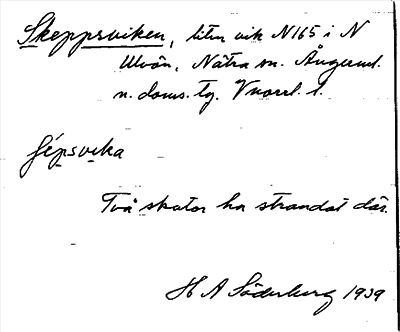 Skeppsviken, liten vik N165 i N
Ulvön, Nätra sn. Ångerml.
n. doms. tg. Vnorrl. l.
ʃépsvika
Två skutor ha strandat där.
H A Söderberg 1939